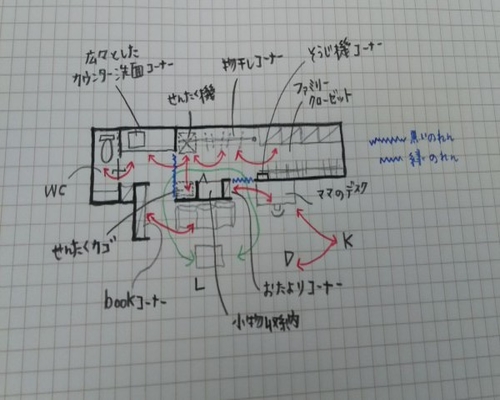 広々とした
カウンター洗面コーナー
せんたく機
物干しコーナー
そうじ機コーナー
ファミリー
クローゼット
黒いのれん
緑いのれん
WC
ママのデスク
せんたくカゴ
K
D
L
bookコーナー
おたよりコーナー
小物収納